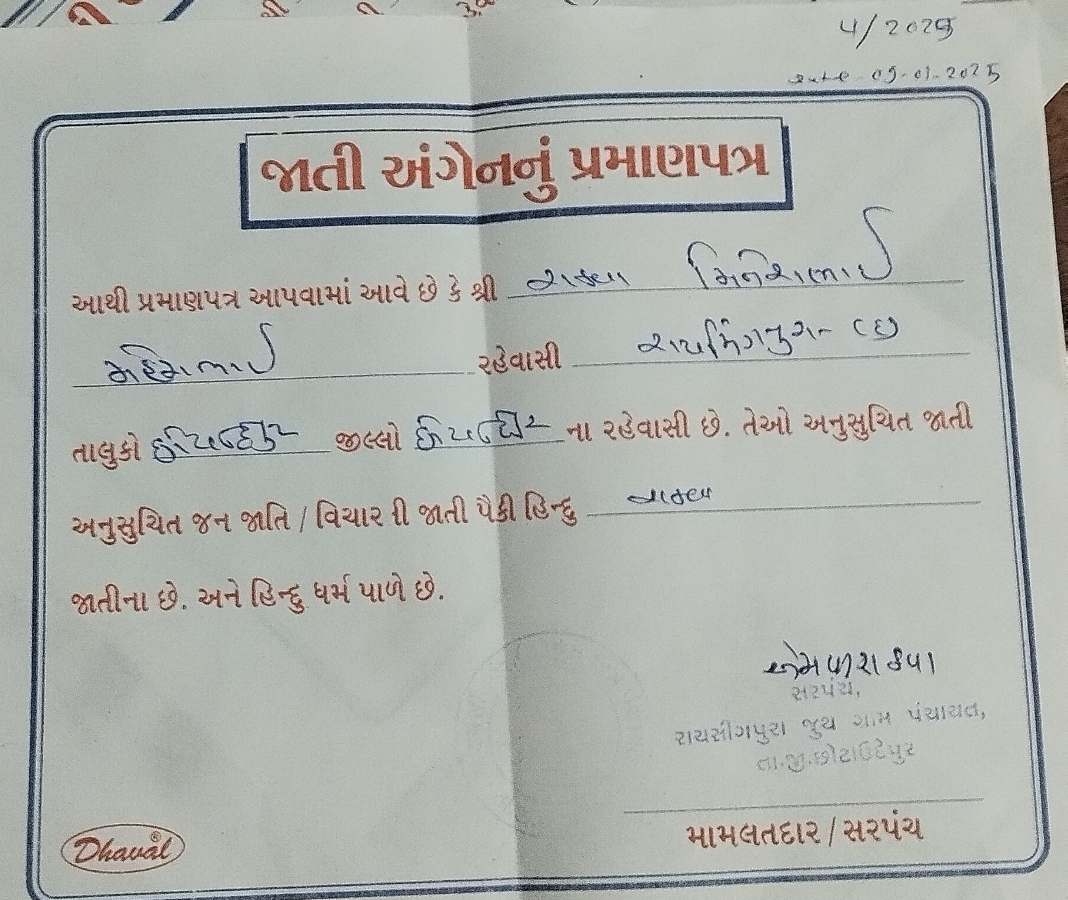 4/2025
date-09-01-2025
જાતી અંગેનનું પ્રમાણપત્ર
આથી પ્રમાણપત્ર આપવામાં આવે છે કે શ્રી રાઠવા મિનેશભાઈ
મહેશભાઈ રહેવાસી રાયસિંગપુરા (જી)
તાલુકો છોટાઉદેપુર જીલ્લો છોટાઉદેપુર ના રહેવાસી છે. તેઓ અનુસુચિત જાતી
અનુસુચિત જન જાતિ / વિચાર ી જાતી પૈકી હિન્દુ રાઠવા
જાતીના છે. અને હિન્દુ ધર્મ પાળે છે.
સરપંચ,
રાયસીંગપુરા જુથ ગ્રામ પંચાયત,
તા.જી.છોટાઉદેપુર
મામલતદાર / સરપંચ
Dhaval®